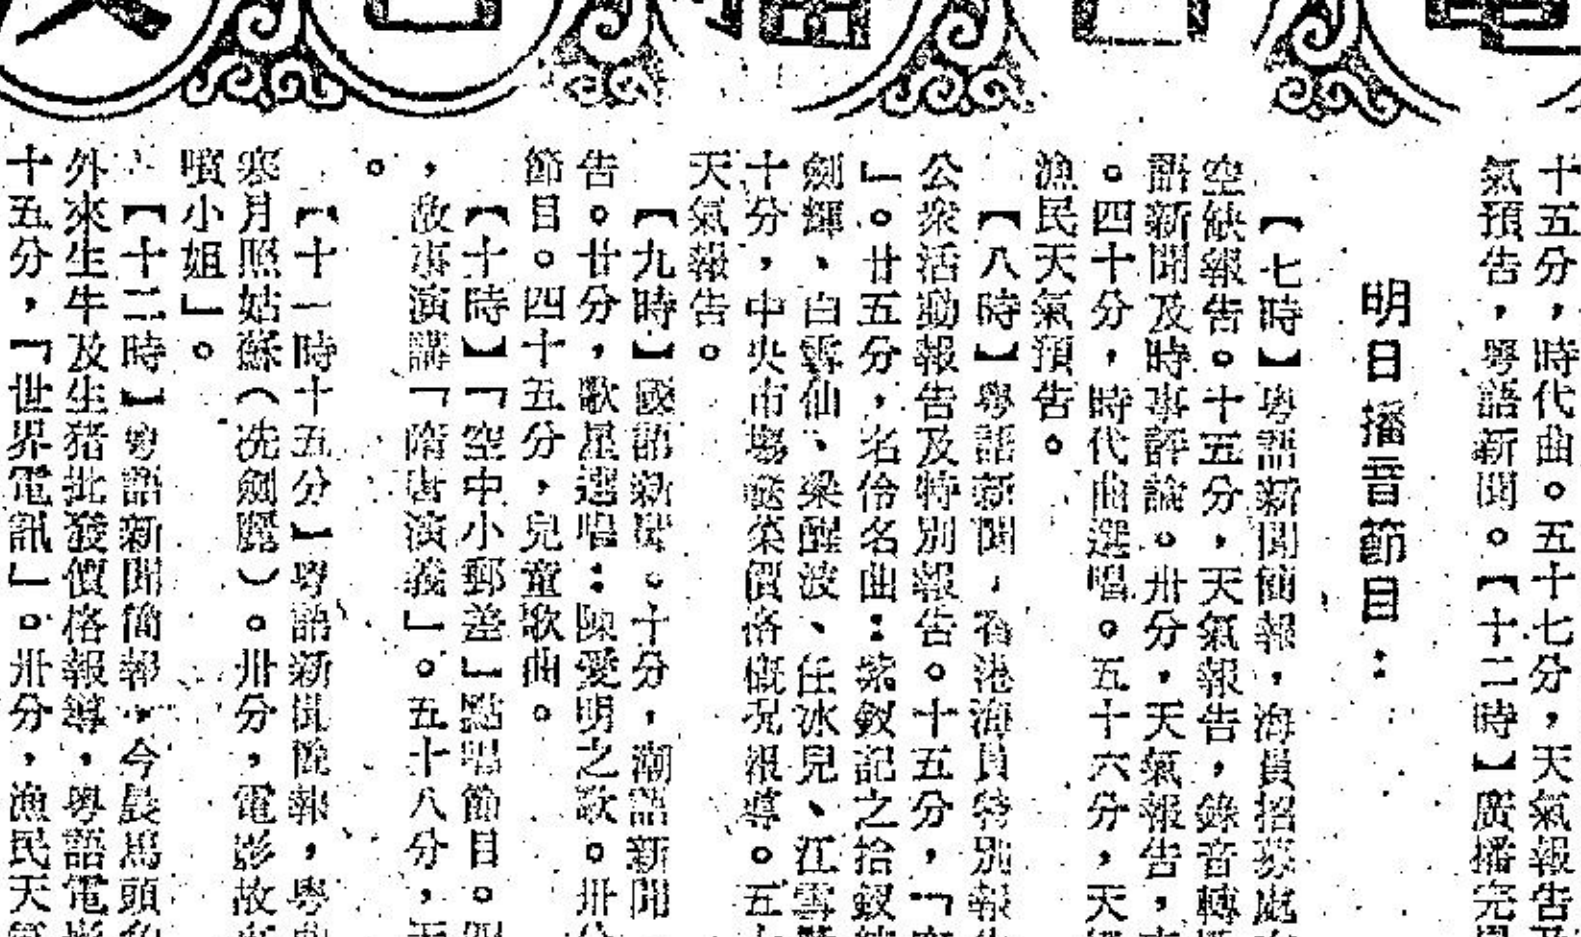 十五分，時代曲。五十七分，天氣報告及
氣預告，粵語新聞。【十二時】廣播完畢
明日播音節目：
【七時】粵語新聞簡報，海員招募處
空缺報告。十五分，天氣報告，錄音轉播
語新聞及時事評論。卅分，天氣報告，
。四十分，時代曲選唱。五十六分，天
漁民天氣預告。
【八時】粵語新聞，香港海員特別報告
公衆活動報告及特別報告。十五分，「
」。廿五分，名伶名曲：紫釵記之拾釵
劍輝、白雪仙、梁醒波、任冰兒、江雪
十分，中央市塲蔬菜價格概况報導。五
天氣報告。
【九時】國語新聞。十分，潮語新聞
告。廿分，歌星選唱：陳愛明之歌。卅
節目。四十五分，兒童歌曲。
【十時】「空中小郵差」點唱節目。
，故事演講「隋唐演義」。五十八分，天
。
【十一時十五分】粵語新聞簡報，粵曲
寒月照姑蘇（冼劍麗）。卅分，電影故
嘖小姐」。
【十二時】粵語新聞簡報，今晨馬頭角
外來生牛及生猪批發價格報導，粵語電
十五分，「世界電訊」。卅分，漁民天氣